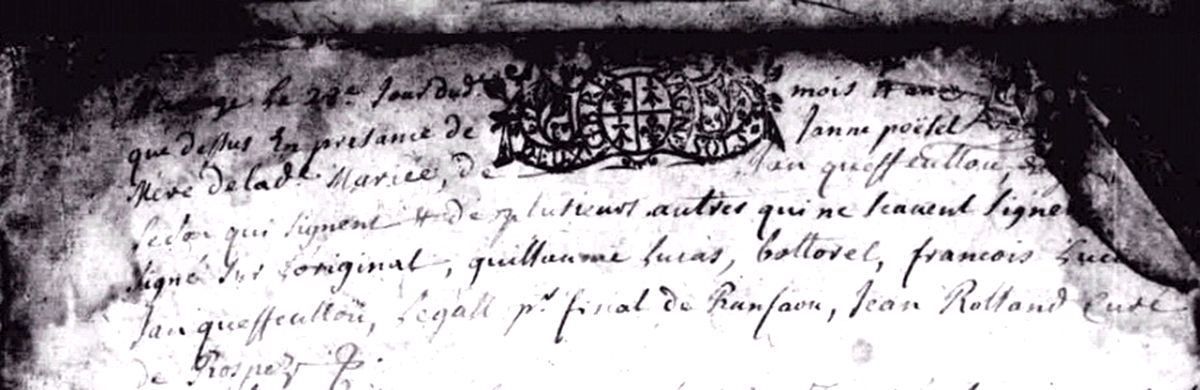 mariage le 28e Jour dud. mois & an
que dessus En presance de Janne poëzel
Mère de lad.e Mariée, de Jan queffeullou,
qui signent & de plusieurs autres qui ne scavent signe
signé sur Loriginal, guillaume Lucas, bottorel, francois Luca
Jan queffeullou, Legall p.tre de Runfaou, Jean Rolland Curé
de Rospez